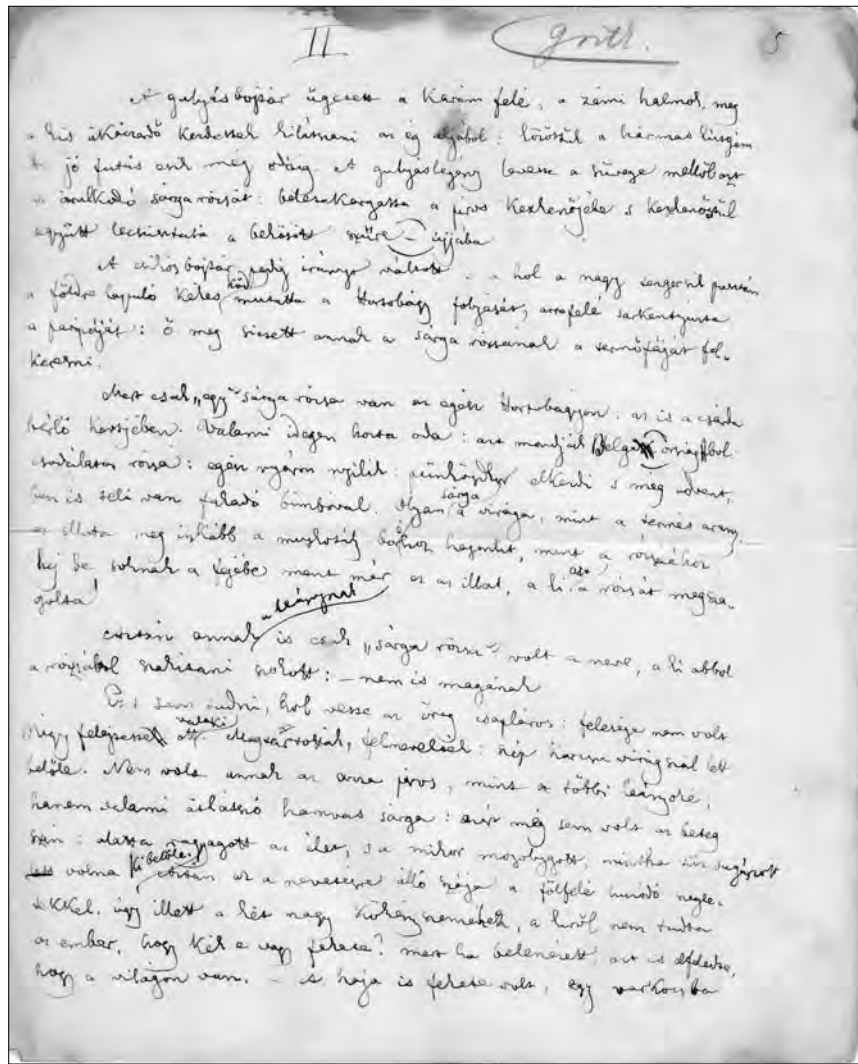 II
5
A gulyásbojtár ügetett a Karám felé, a zámi halmok, meg
a kis ákáczerdő kezdettek kilátszani az ég aljából: közöttük a hármas kútgém
jó futás esik meg odáig. A gulyáslegény levette a süvege mellől azt
az árulkodó sárga rózsát: beletakargatta a piros kezkenőjébe s kezkenőstül
együtt lecsúsztatta a bekötött szűre-újjába
A csikós bojtár pedig irányt váltott a hol a nagy tengersík pusztán
a földre lapuló kékes köd mutatta a Hortobágy folyását, arrafelé sarkantyúzta
a paripáját: ő meg sietett annak a sárga rózsának a termőfáját fel-
keresni.
Mert csak „egy" sárga rózsa van az egész Hortobágyon: az is a csárda
kertjében. Valami idegen hozta oda: azt mondják Belgaországból.
csodálatos rózsa: egész nyáron nyílik: pünkösdkor elkezdi s még advent-
ben is teli van fakadó bimbóval. Olyan sárga a virága, mint a termés arany,
az illata meg inkább a muskotály borhoz hasonlít, mint a rózsáéhoz
hej de soknak a fejébe ment már ez az illat, a ki azt a rózsát megsza-
golta!
aztán annak a leánynak is csak „sárga rózsa" volt a neve, a ki abból
a rózsából szakítani szokott: – nem is magának
Azt sem tudni, hol vette az öreg csapláros: felesége nem volt
úgy felejtette ott valaki Megtartották, felnevelték: szép karcsu virágszál lett
belőle. Nem volt annak az arca piros, mint a többi leányoké,
hanem valami átlátszó hamvas sárga: azért még sem volt az beteg
szín: alatta ragyagott az élet, s a mikor mosolygott, mintha tűz sugárzott
volna ki belőle. Aztán az a nevetésre álló szája a fölfelé húzódó szegle-
tekkel, úgy illett a két nagy kökényszeméhez, a kiről nem tudta
az ember, hogy kék e vagy fekete? mert ha belenézett, azt is elfeledte,
hogy a világon van. – A haja is fekete volt, egy varkocsba